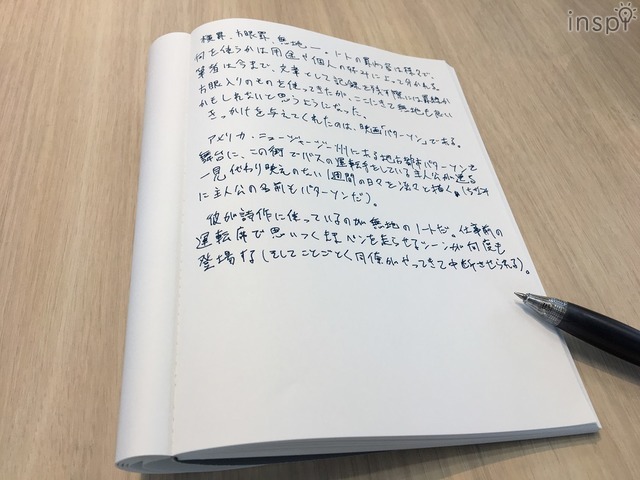 inspi
横罫、方眼罫、無地――。ノートの罫内容は様々で、
何を使うかは用途や個人の好みによって分かれる。
筆者は今まで、文章として記録を残す際には罫線か
方眼入りのものを使ってきたが、ここにきて無地も良い
かもしれないと思うようになった。
きっかけを与えてくれたのは、映画「パターソン」である。
アメリカ・ニュージャージー州にある地方都市パターソンを
舞台に、この街でバスの運転手をしている主人公が送る
一見代わり映えのない1週間の日々を淡々と描く。(ちなみ
に主人公の名前もパターソンだ)。
彼が詩作に使っているのが無地のノートだ。仕事前の
運転席で思いつくままペンを走らせるシーンが何度も
登場する(そしてことごとく同僚がやってきて中断させられる)。